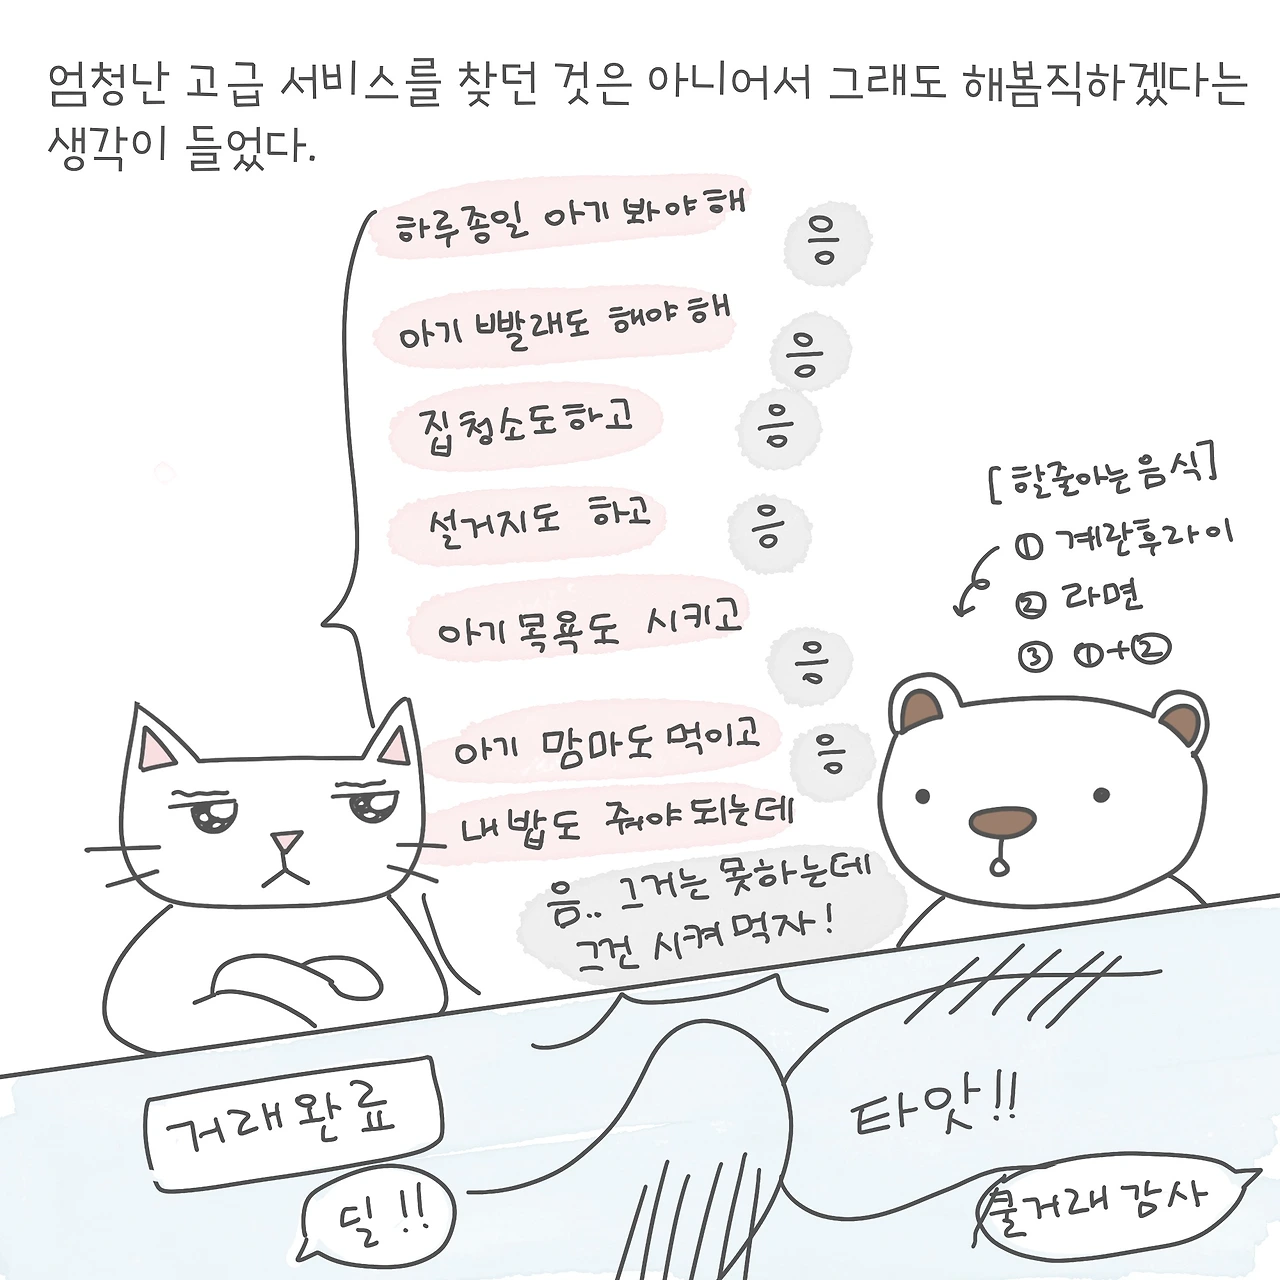 엄청난 고급 서비스를 찾던 것은 아니어서 그래도 해봄직하겠다는
생각이 들었다.
하루종일 아기 봐야해
응
아기 빨래도 해야해
응
집청소도하고
응
설거지도 하고
응
아기목욕도 시키고
응
아기 맘마도 먹이고
응
내밥도 줘야되는데
음.. 그거는 못하는데
그건 시켜먹자!
[할줄아는음식]
① 계란후라이
② 라면
③ ①+②
거래완료
딜!!
타앗!!
쿨거래감사